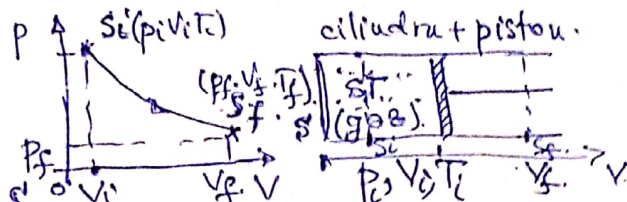 p Si(piViTi)
(pf.Vf.Tf)
Sf
Pf
0 Vi Vf. V
cilindru + piston.
S.T.
(gaz)
Si Sf
pi, Vi, Ti Vf. V